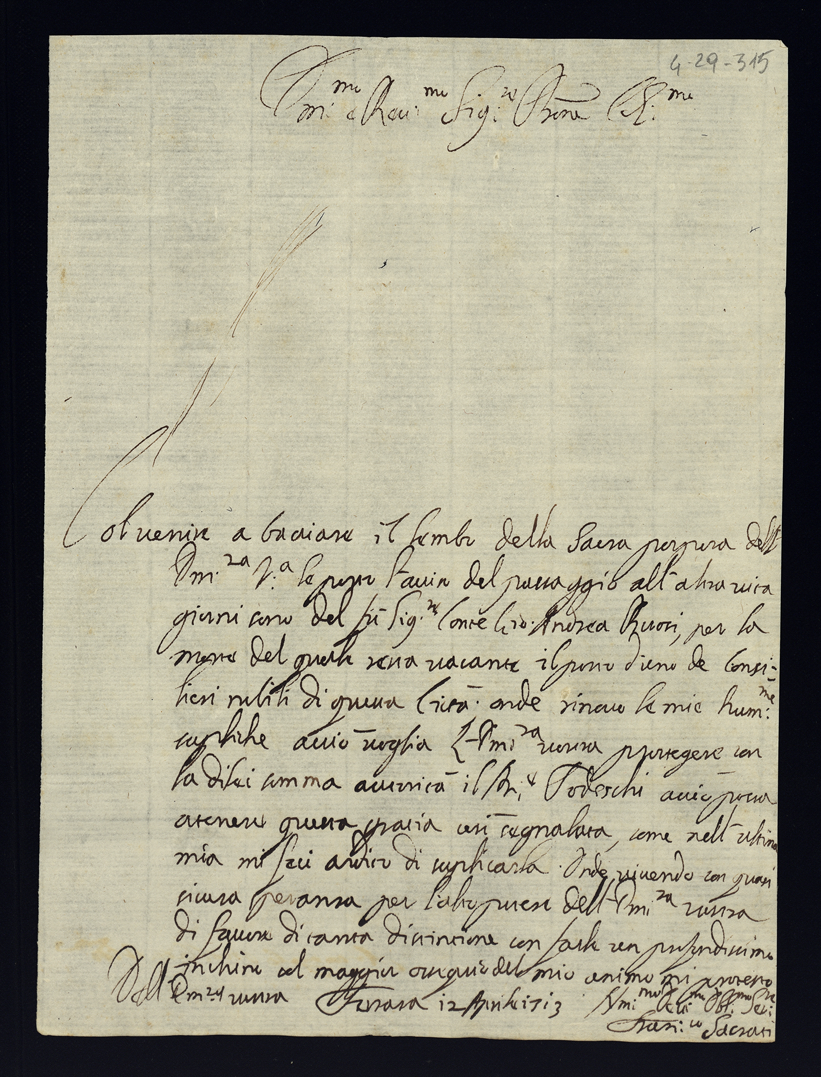 4-29-315
Em:mo e Reu:mo Sig:re Prone Col:mo
Col uenire a baciare il lembo della Sacra porpora dell
Em:za V:a le porto l'auiso del passaggio all'altra uita
giorni sono del fù Sig:re Conte Gio: Andrea per la
morte del quale resta uacante il posto d'uno de Consi-
lieri nobili di questa Città. onde rinouo le mie hum:me
supliche acciò uoglia l'Em:za uostra proteggere con
la di lei somma auttorità il Todeschi acciò possa
ottenere questa grazia così segnalata, come nell'ultima
mia mi feci ardito di suplicarla. Onde uiuendo con quasi
sicura speranza per l'alto potere dell'Em:za uostra
di fauore di tanta distinzione con farle un profondissimo
inchino col maggior ossequio del mio animo mi protesto
Dell'Em:za uostra Ferrara 12 Aprile 1713 Hum:mo
Fran:co Sacrati